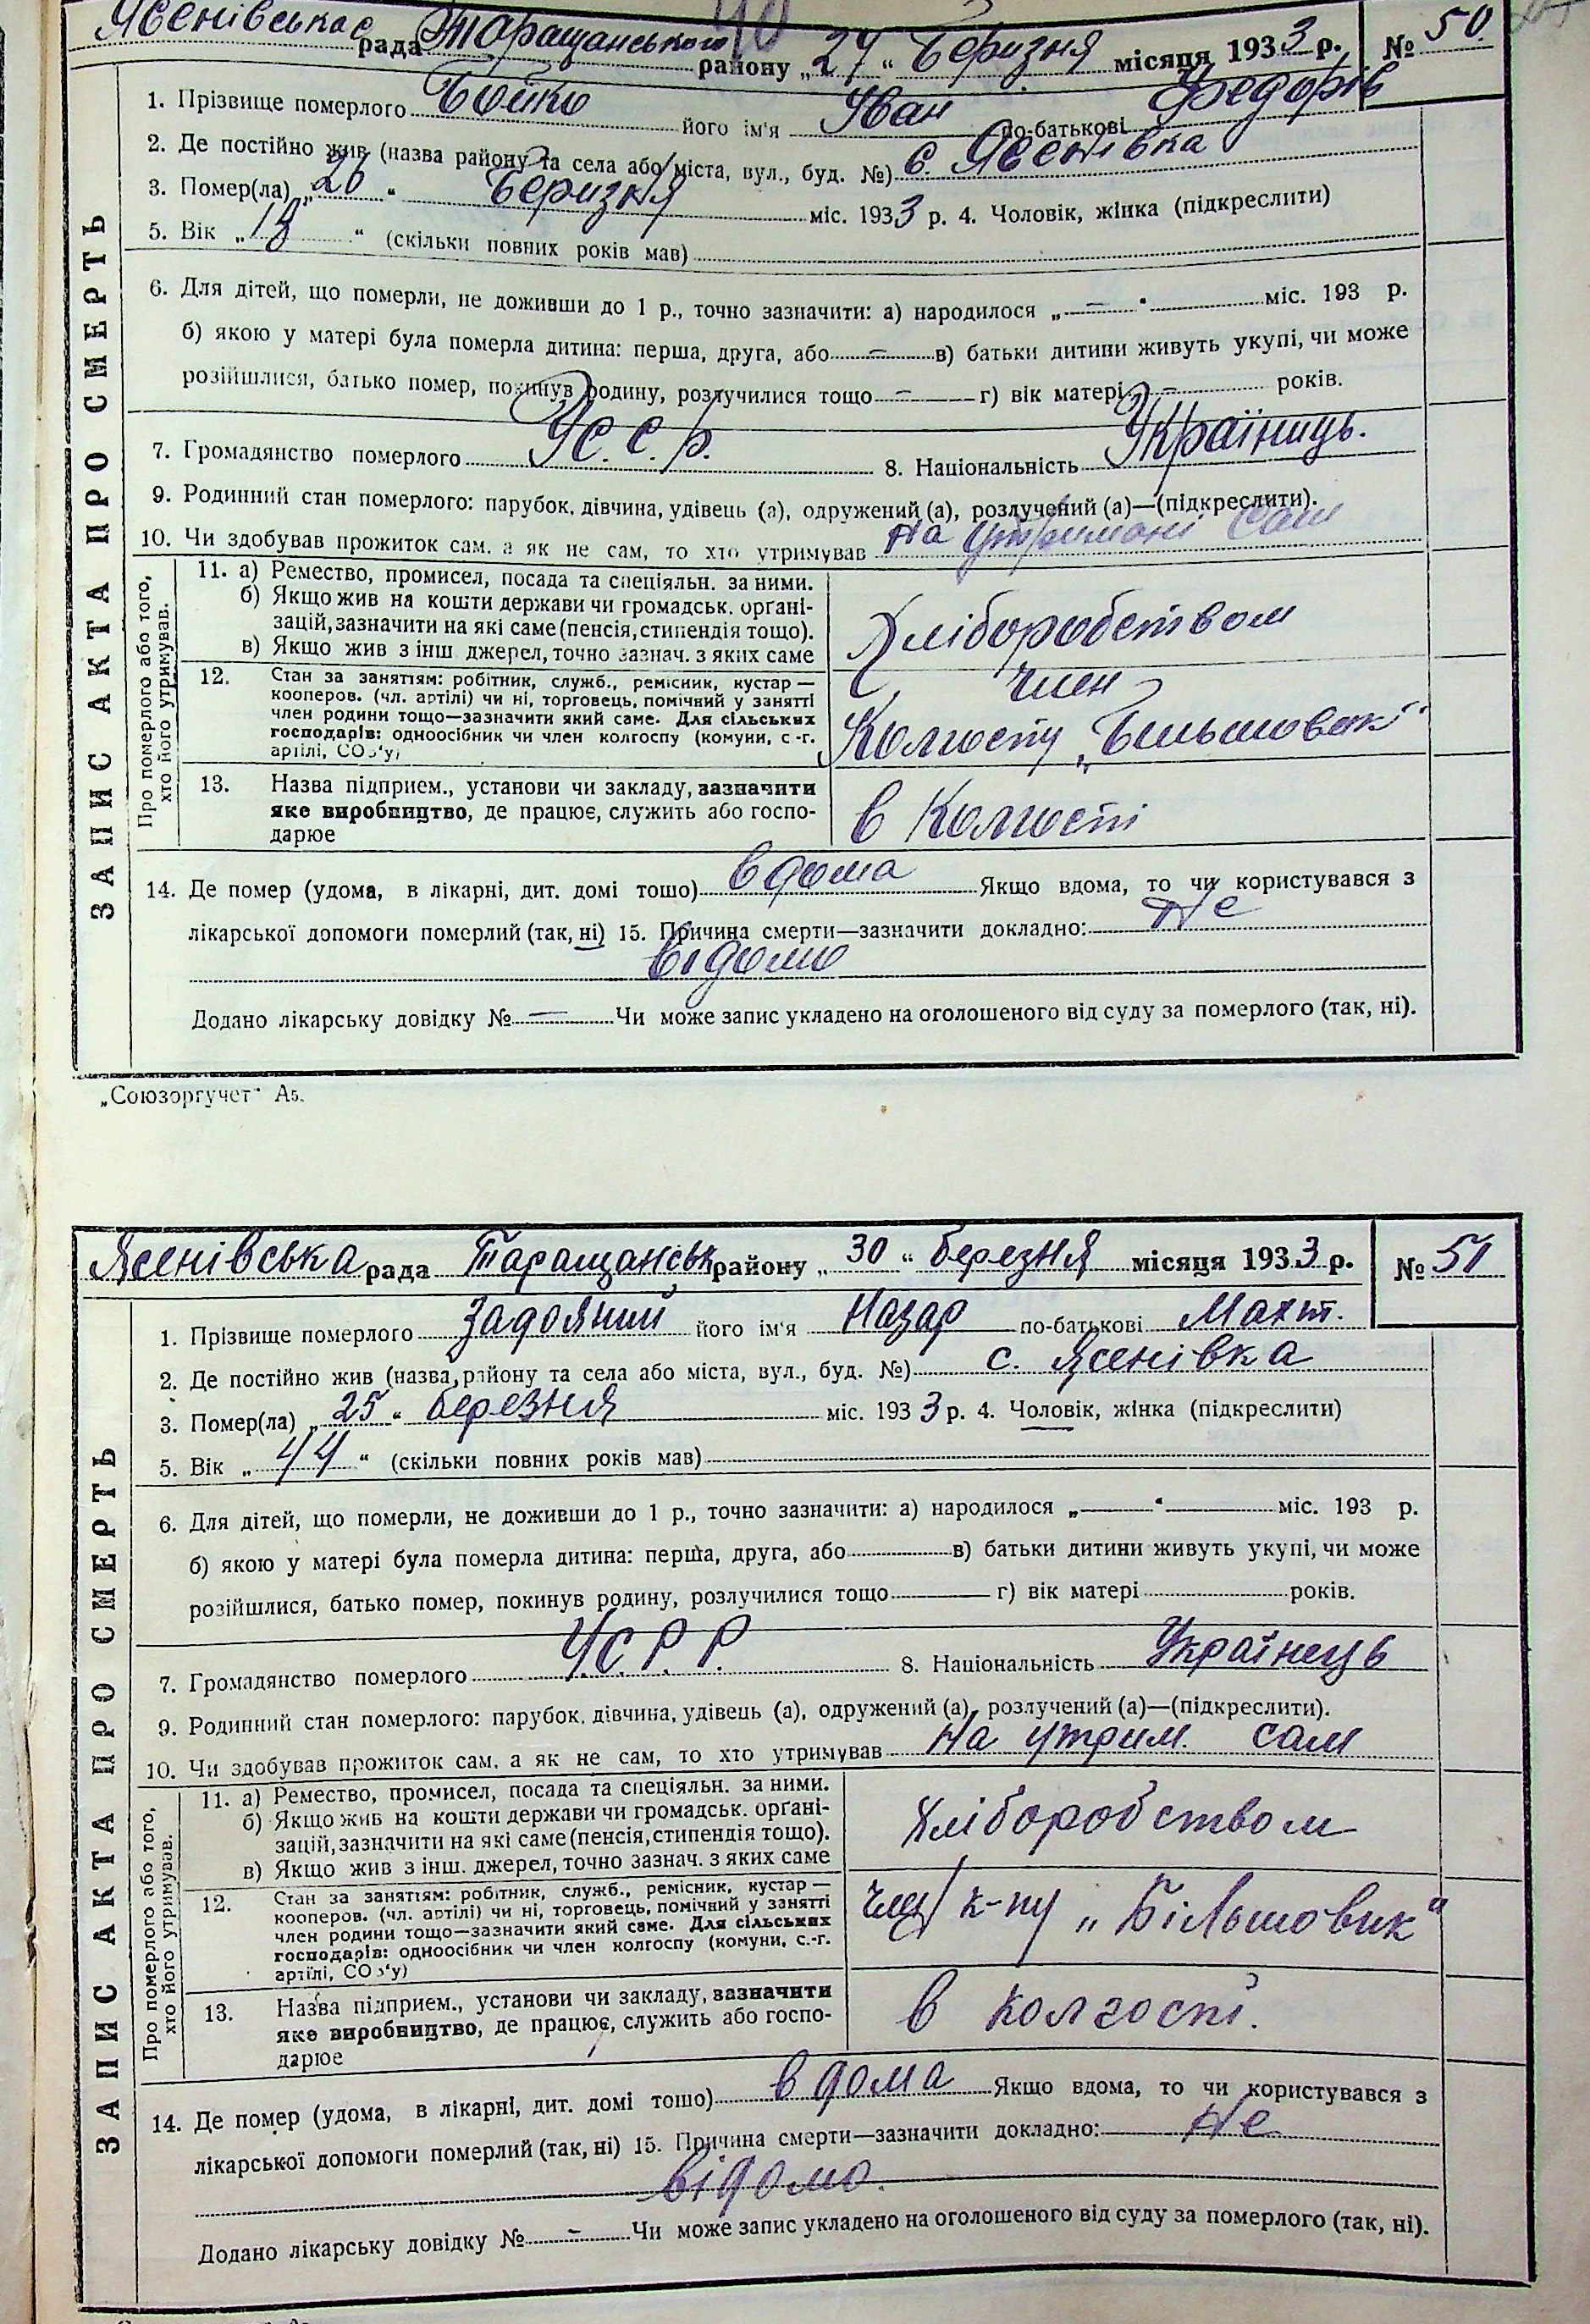 Ясенівська рада Таращанського району „29“ Березня місяця 1933 р. № 50.
ЗАПИС АКТА ПРО СМЕРТЬ
1. Прізвище померлого Бойко його ім'я Іван по-батькові Федорів
2. Де постійно жив (назва району та села або міста, вул., буд. №) с. Ясенівка
3. Помер(ла) „26“ Березня міс. 1933 р. 4. Чоловік, жінка (підкреслити)
5. Вік „18“ (скільки повних років мав)
6. Для дітей, що померли, не доживши до 1 р., точно зазначити: а) народилося „—“ міс. 193 р.
б) якою у матері була померла дитина: перша, друга, або — в) батьки дитини живуть укупі, чи може
розійшлися, батько помер, покинув родину, розлучилися тощо — г) вік матері — років.
7. Громадянство померлого У.С.С.р. 8. Національність Україниць.
9. Родинний стан померлого: парубок, дівчина, удівець (а), одружений (а), розлучений (а)—(підкреслити).
10. Чи здобував прожиток сам, а як не сам, то хто утримував на утримані сам
Про померлого або того, хто його утримував.
11. а) Ремество, промисел, посада та спеціяльн. за ними.
б) Якщо жив на кошти держави чи громадськ. органі-
зацій, зазначити на які саме (пенсія, стипендія тощо).
в) Якщо жив з інш. джерел, точно зазнач. з яких саме
Хліборобством
12. Стан за заняттям: робітник, служб., ремісник, кустар—
кооперов. (чл. артілі) чи ні, торговець, помічний у занятті
член родини тощо—зазначити який саме. Для сільських
господарів: одноосібник чи член колгоспу (комуни, с.-г.
артілі, СОЗ'у)
член
Колгоспу „Більшовик“
13. Назва підприєм., установи чи закладу, зазначити
яке виробництво, де працює, служить або госпо-
дарює
в Колгоспі
14. Де помер (удома, в лікарні, дит. домі тощо) вдома Якщо вдома, то чи користувався з
лікарської допомоги померлий (так, ні) 15. Причина смерти—зазначити докладно: Не
відомо
Додано лікарську довідку № — Чи може запис укладено на оголошеного від суду за померлого (так, ні).
„Союзоргучет“ А5.
Ясенівська рада Таращанськ району „30“ березня місяця 1933 р. № 51
ЗАПИС АКТА ПРО СМЕРТЬ
1. Прізвище померлого Задояний його ім'я Назар по-батькові Махт.
2. Де постійно жив (назва району та села або міста, вул., буд. №) с. Ясенівка
3. Помер(ла) „25“ березня міс. 1933 р. 4. Чоловік, жінка (підкреслити)
5. Вік „44“ (скільки повних років мав)
6. Для дітей, що померли, не доживши до 1 р., точно зазначити: а) народилося „—“ міс. 193 р.
б) якою у матері була померла дитина: перша, друга, або в) батьки дитини живуть укупі, чи може
розійшлися, батько помер, покинув родину, розлучилися тощо г) вік матері років.
7. Громадянство померлого У.С.Р.Р. 8. Національність Українець
9. Родинний стан померлого: парубок, дівчина, удівець (а), одружений (а), розлучений (а)—(підкреслити).
10. Чи здобував прожиток сам, а як не сам, то хто утримував на утрим. сам
Про померлого або того, хто його утримував.
11. а) Ремество, промисел, посада та спеціяльн. за ними.
б) Якщо жив на кошти держави чи громадськ. органі-
зацій, зазначити на які саме (пенсія, стипендія тощо).
в) Якщо жив з інш. джерел, точно зазнач. з яких саме
Хліборобством
12. Стан за заняттям: робітник, служб., ремісник, кустар—
кооперов. (чл. артілі) чи ні, торговець, помічний у занятті
член родини тощо—зазначити який саме. Для сільських
господарів: одноосібник чи член колгоспу (комуни, с.-г.
артілі, СОЗ'у)
член к-пу „Більшовик“
13. Назва підприєм., установи чи закладу, зазначити
яке виробництво, де працює, служить або госпо-
дарює
в колгоспі.
14. Де помер (удома, в лікарні, дит. домі тощо) вдома Якщо вдома, то чи користувався з
лікарської допомоги померлий (так, ні) 15. Причина смерти—зазначити докладно: Не
відомо.
Додано лікарську довідку № — Чи може запис укладено на оголошеного від суду за померлого (так, ні).